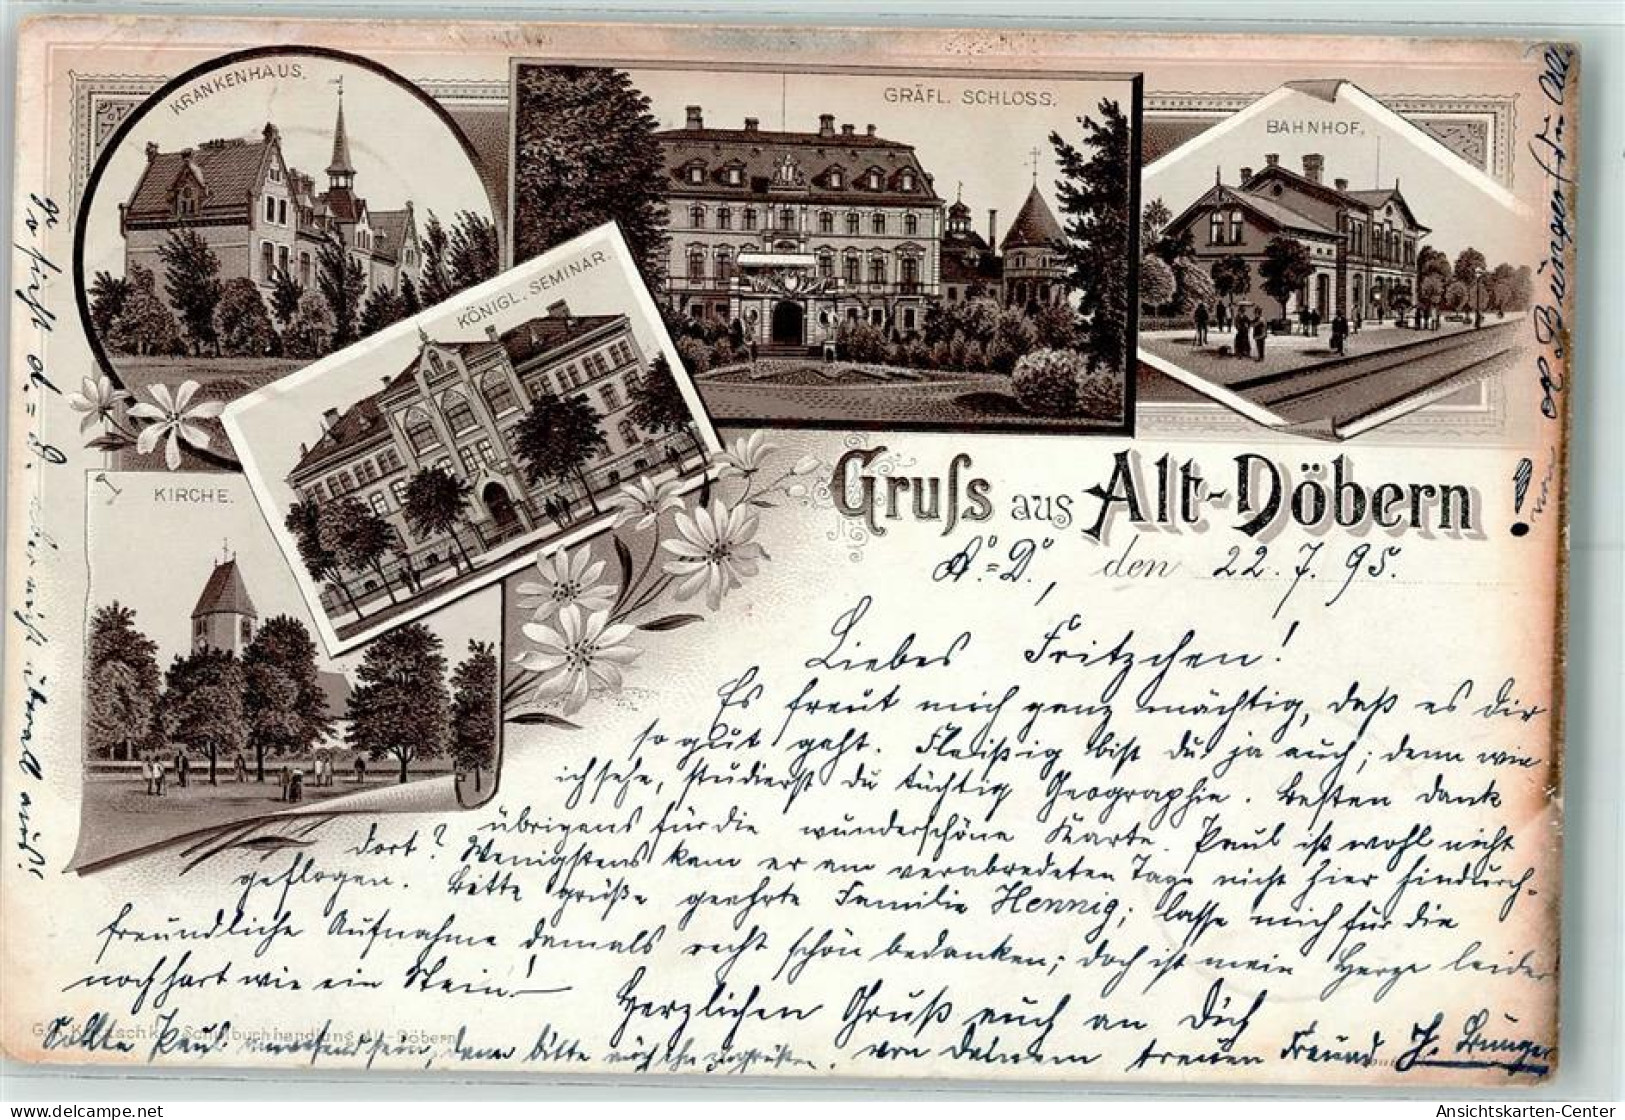 KRANKENHAUS.
GRÄFL. SCHLOSS.
BAHNHOF.
KÖNIGL. SEMINAR.
KIRCHE.
Gruſs aus Alt-Döbern!
A.=D., den 22.7.95.
Liebes Fritzchen!
Es freut mich ganz mächtig, daß es dir
so gut geht. Fleißig bist du ja auch; denn wie
ich sehe, studierst du tüchtig Geographie. Besten Dank
übrigens für die wunderschöne Karte. Paul ist wohl nicht
dort? Wenigstens kam er am verabredeten Tage nicht hier hindurch-
geflogen. Bitte grüße geehrte Familie Hennig; lasse mich für die
freundliche Aufnahme damals recht schön bedanken; doch ist mein Herze leider
noch hart wie ein Stein!
Herzlichen Gruß auch an Dich
von Deinem treuen Freund J. Bünger
Sollte Paul anwesend sein, dann bitte auch ihn zu grüßen.
So sieht's
überall aus!
Schulbuchhandlung Alt-Döbern
Ansichtskarten-Center